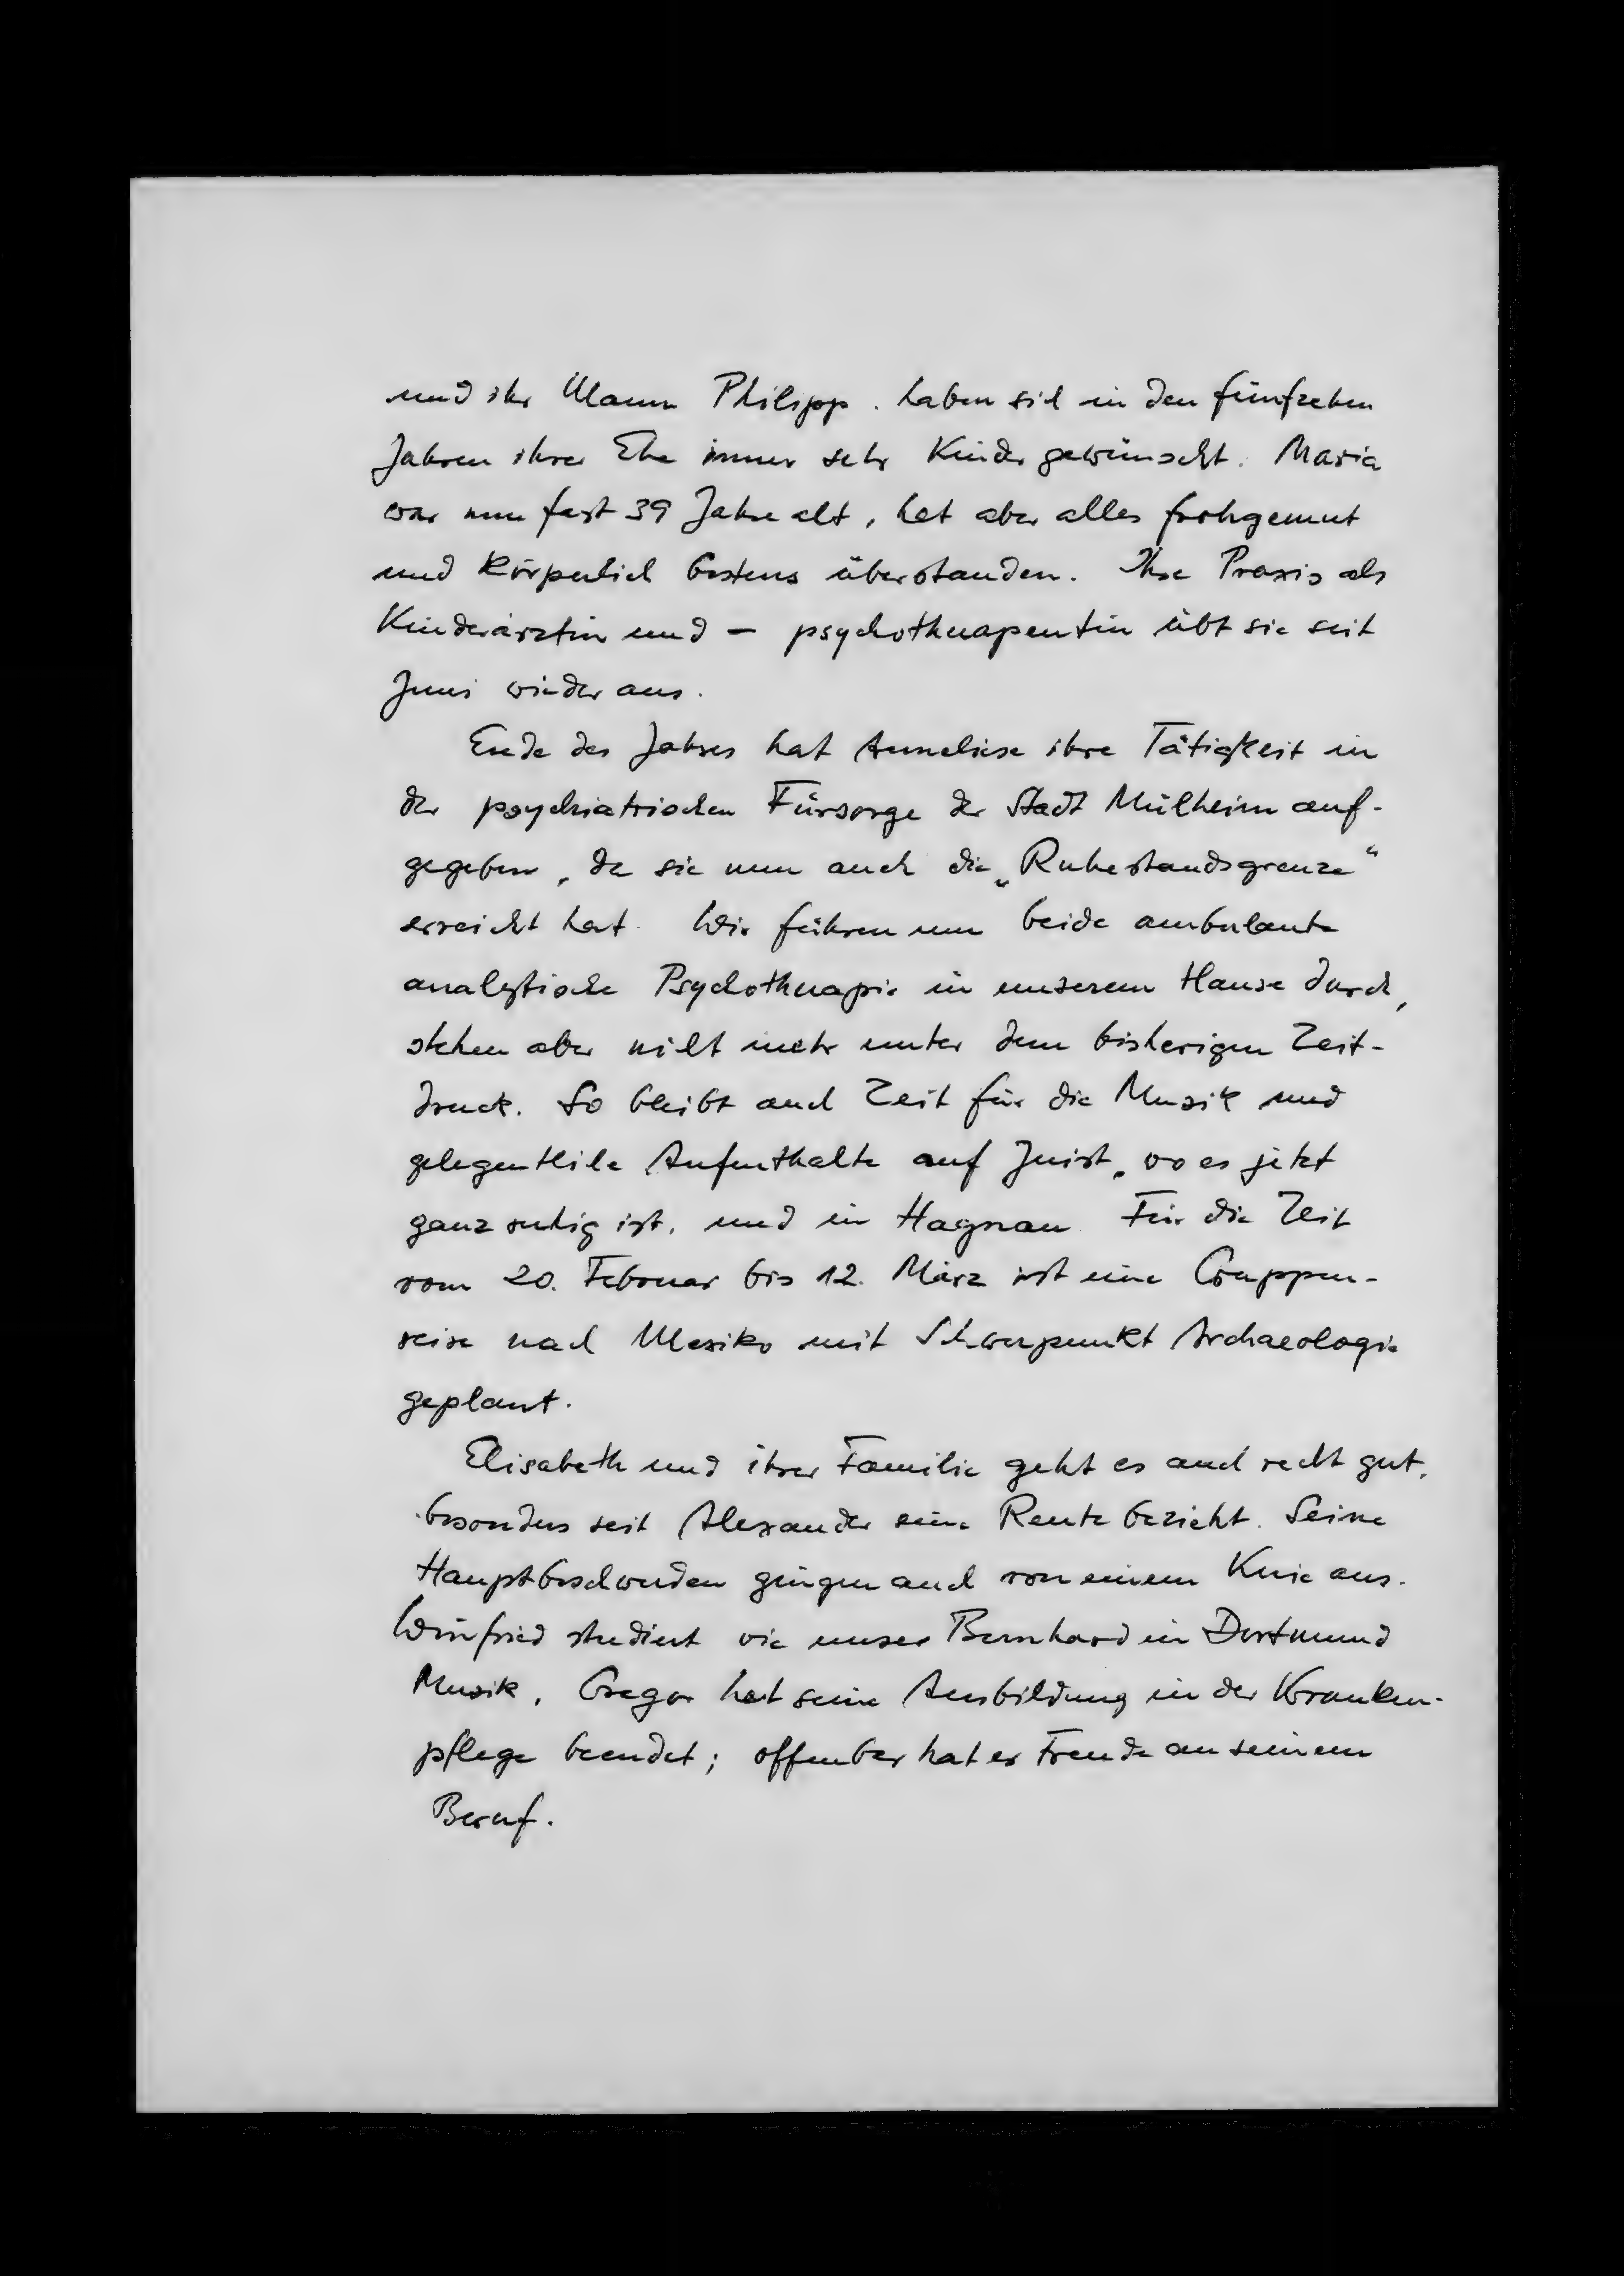 und ihr Mann Philipp. haben sich in den fünfzehen
Jahren ihrer Ehe immer sehr Kinder gewünscht. Maria
war nun fast 39 Jahre alt, hat aber alles frohgemut
und körperlich bestens überstanden. Ihre Praxis als
Kinderärztin und - psychotherapeutin übt sie seit
Juni wieder aus.
Ende des Jahres hat Anneliese ihre Tätigkeit in
der psychiatrischen Fürsorge der Stadt Mülheim auf-
gegeben, da sie nun auch die „Ruhestandsgrenze“
erreicht hat. Wir führen nun beide ambulante
analytische Psychotherapie in unserem Hause durch,
stehen aber nicht mehr unter dem bisherigen Zeit-
druck. So bleibt auch Zeit für die Musik und
gelegentliche Aufenthalte auf Juist, wo es jetzt
ganz ruhig ist, und in Hagnau. Für die Zeit
vom 20. Februar bis 12. März ist eine Gruppen-
reise nach Mexiko mit Schwerpunkt Archaeologie
geplant.
Elisabeth und ihrer Familie geht es auch recht gut,
besonders seit Alexander seine Rente bezieht. Seine
Hauptbeschwerden gingen auch von einem Knie aus.
Winfried studiert wie unser Bernhard in Dortmund
Musik, Gregor hat seine Ausbildung in der Kranken-
pflege beendet; offenbar hat er Freude an seinem
Beruf.